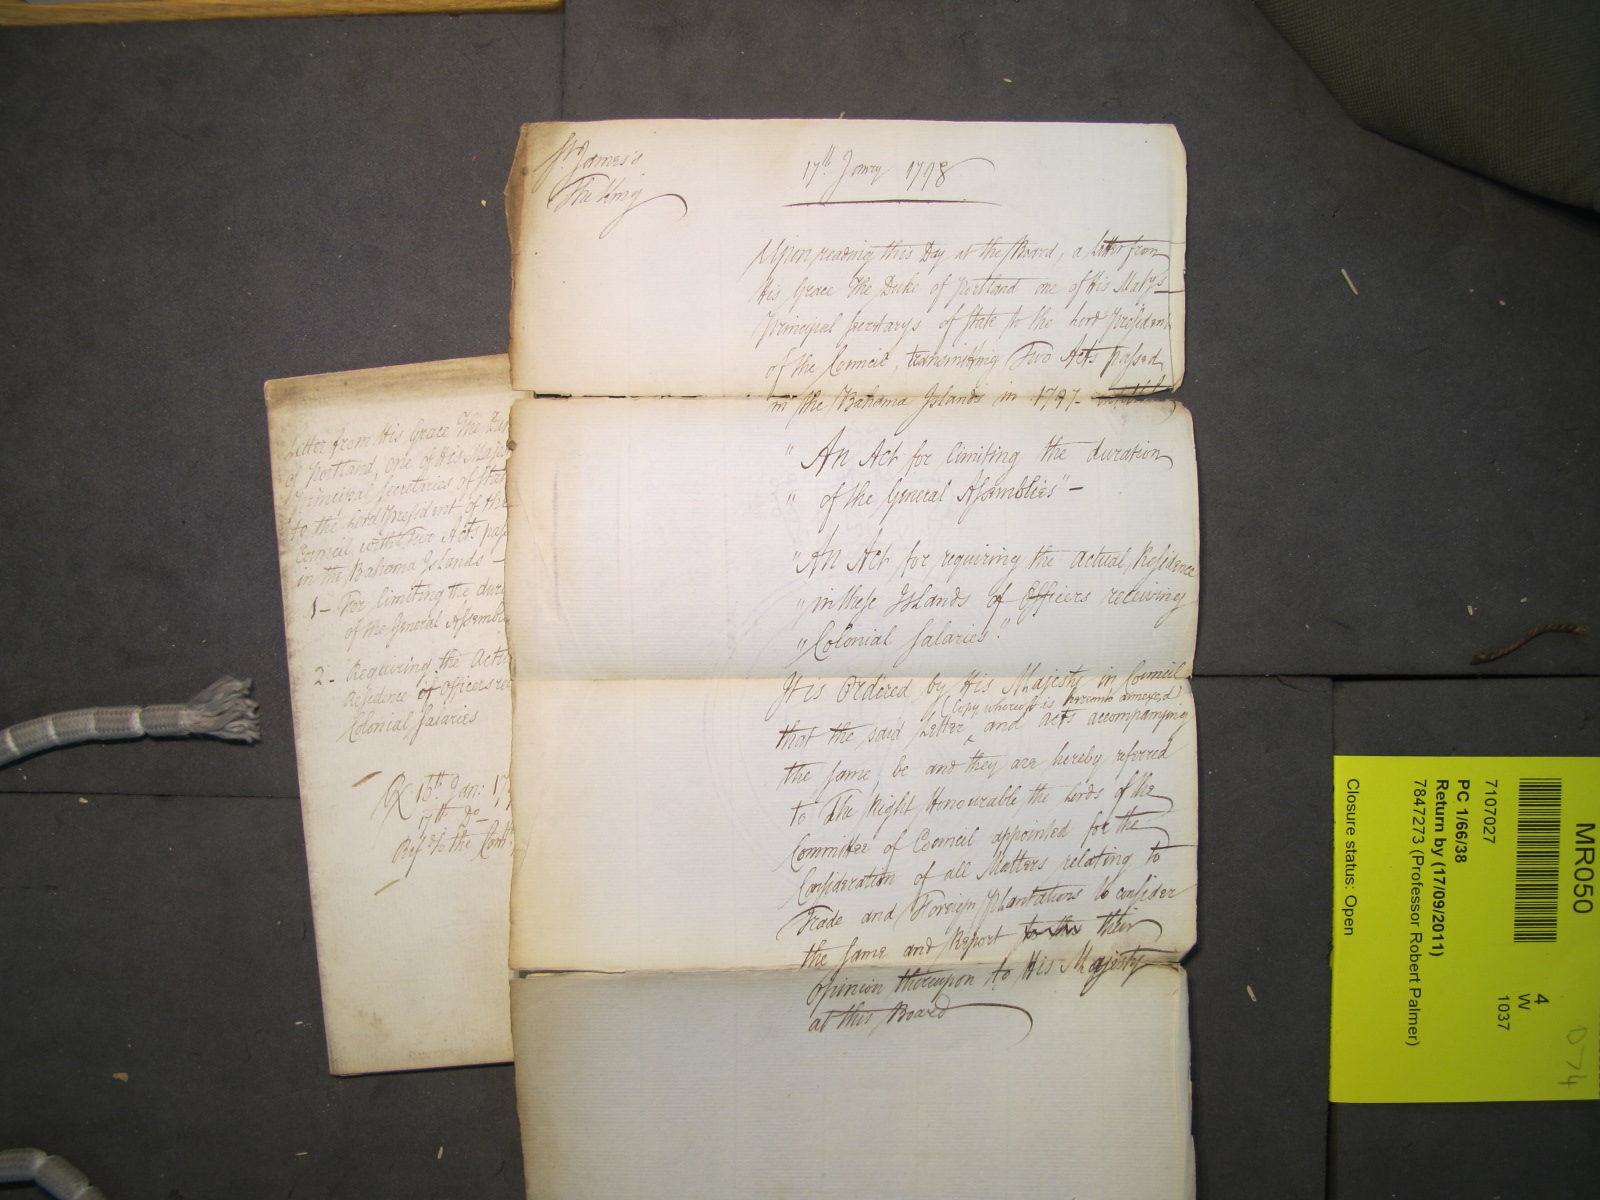 St. James's
The King
17th Janry 1798
Upon reading this Day at the Board, a Letter from
His Grace The Duke of Portland one of His Maty's
Principal Secretarys of State to the Lord President
of the Council, transmitting Two Acts passed
in the Bahama Islands in 1797 -
" An Act for limiting the duration
" of the General Assemblies" -
" An Act for requiring the actual Residence
" in these Islands of Officers receiving
" Colonial Salaries."
It is Ordered by His Majesty in Council
(Copy whereof is hereunto annexed)
that the said Letter ^ and Acts accompanying
the same, be and they are hereby referred
to The Right Honourable the Lords of the
Committee of Council appointed for the
Consideration of all Matters relating to
Trade and Foreign Plantations to consider
the same and Report to the their
Opinion thereupon to His Majesty
at this Board
Letter from His Grace The Du
of Portland, one of His Majes
Principal Secretaries of Stat
to the Lord President of the
Council, with Two Acts pass
in the Bahama Islands -
1 - For limiting the dura
of the General Assembl
2 - Requiring the Actu
Residence of Officers rec
Colonial Salaries
Rx 15th Jan: 17
17th Do
Refd to the Comtt
MR050
7107027
PC 1/66/38
Return by (17/09/2011)
7847273 (Professor Robert Palmer)
Closure status: Open
4
W
1037
D74